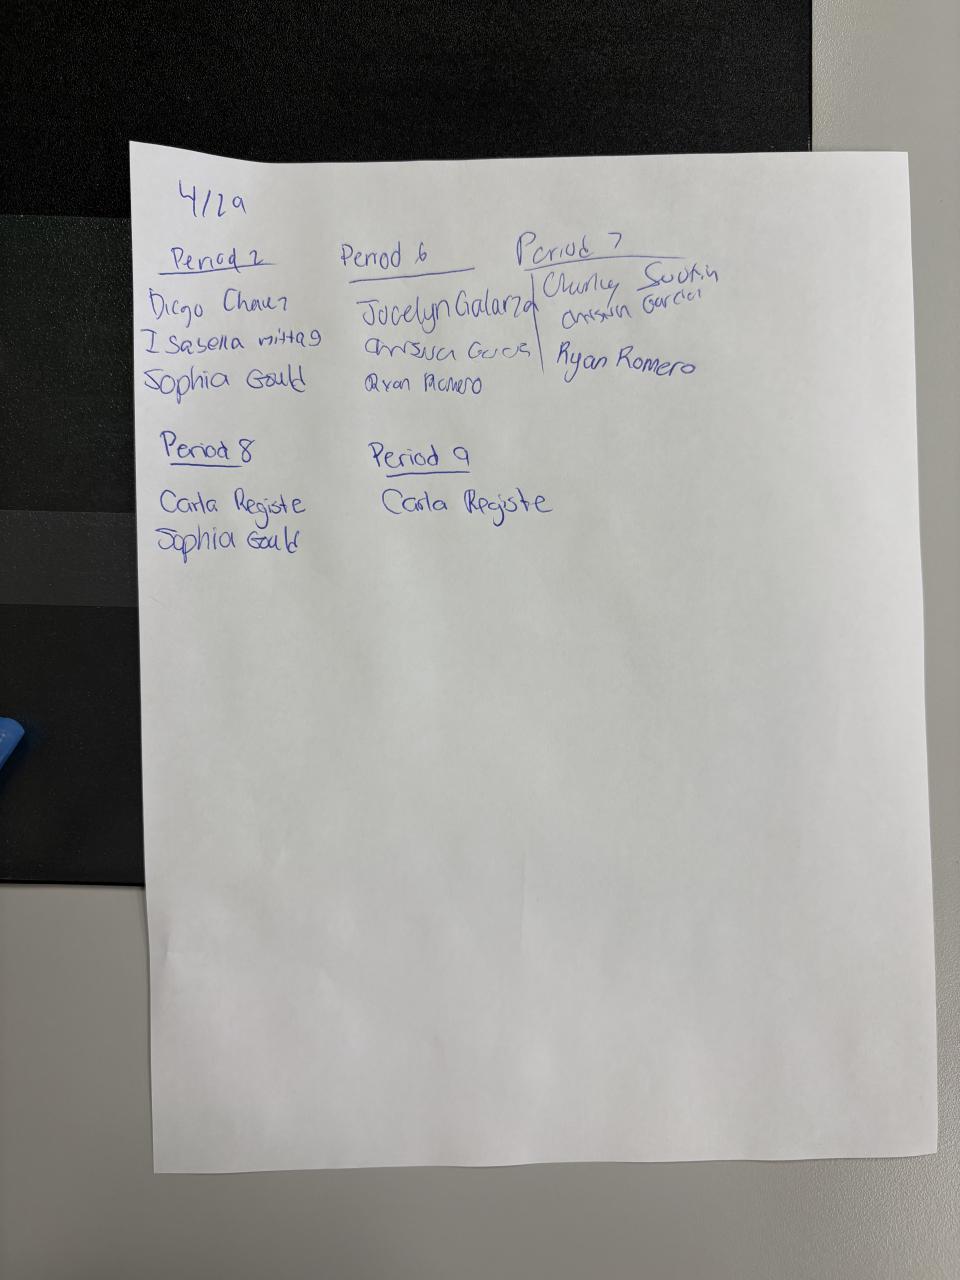 4/29
Period 2
Diego Chavez
Isabella Mittag
Sophia Gould
Period 6
Jocelyn Galarza
Garcia
Ryan Romero
Period 7
Charley
Garcia
Ryan Romero
Period 8
Carla Registe
Sophia Gould
Period 9
Carla Registe